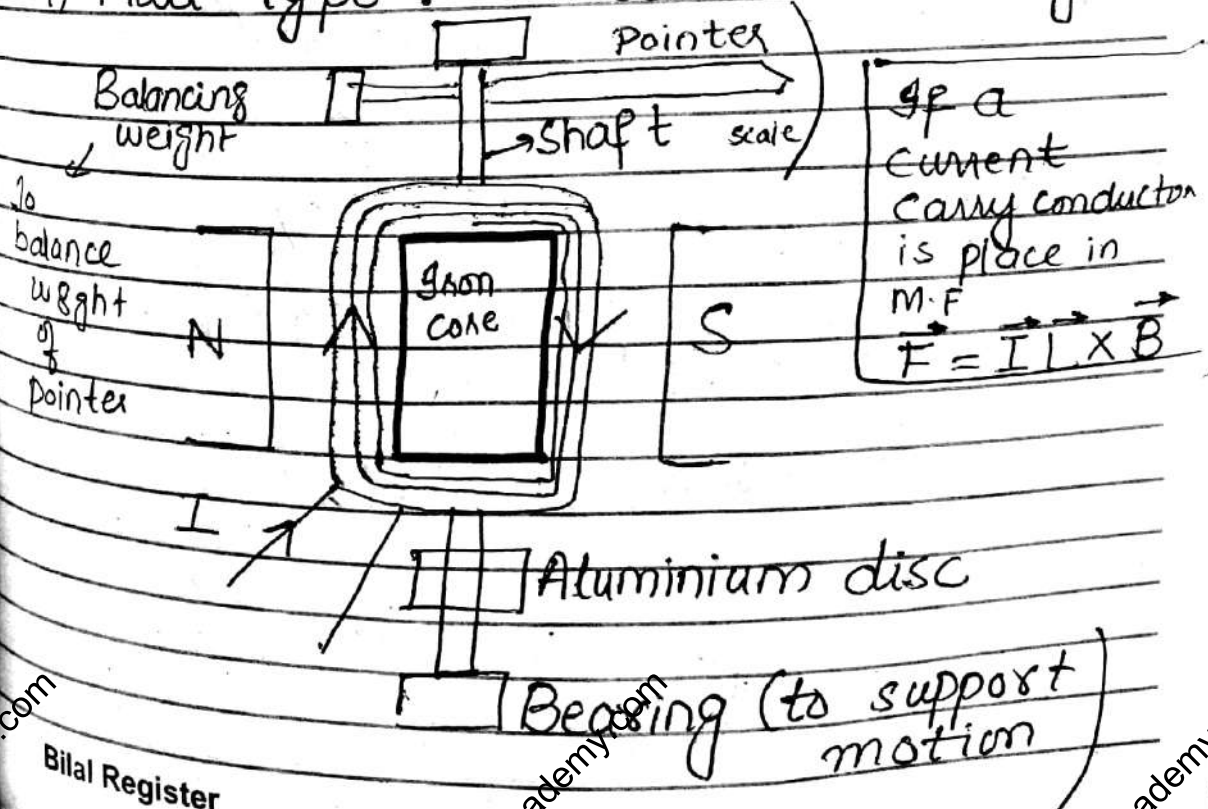 Type :
Pointer
Balancing
weight
shaft
scale
To
balance
weight
of
pointer
N
Iron
core
S
If a
current
carry conductor
is place in
M.F
F = I L × B
I
Aluminium disc
Bearing (to support
motion
.com
ademy.com
ademy
Bilal Register